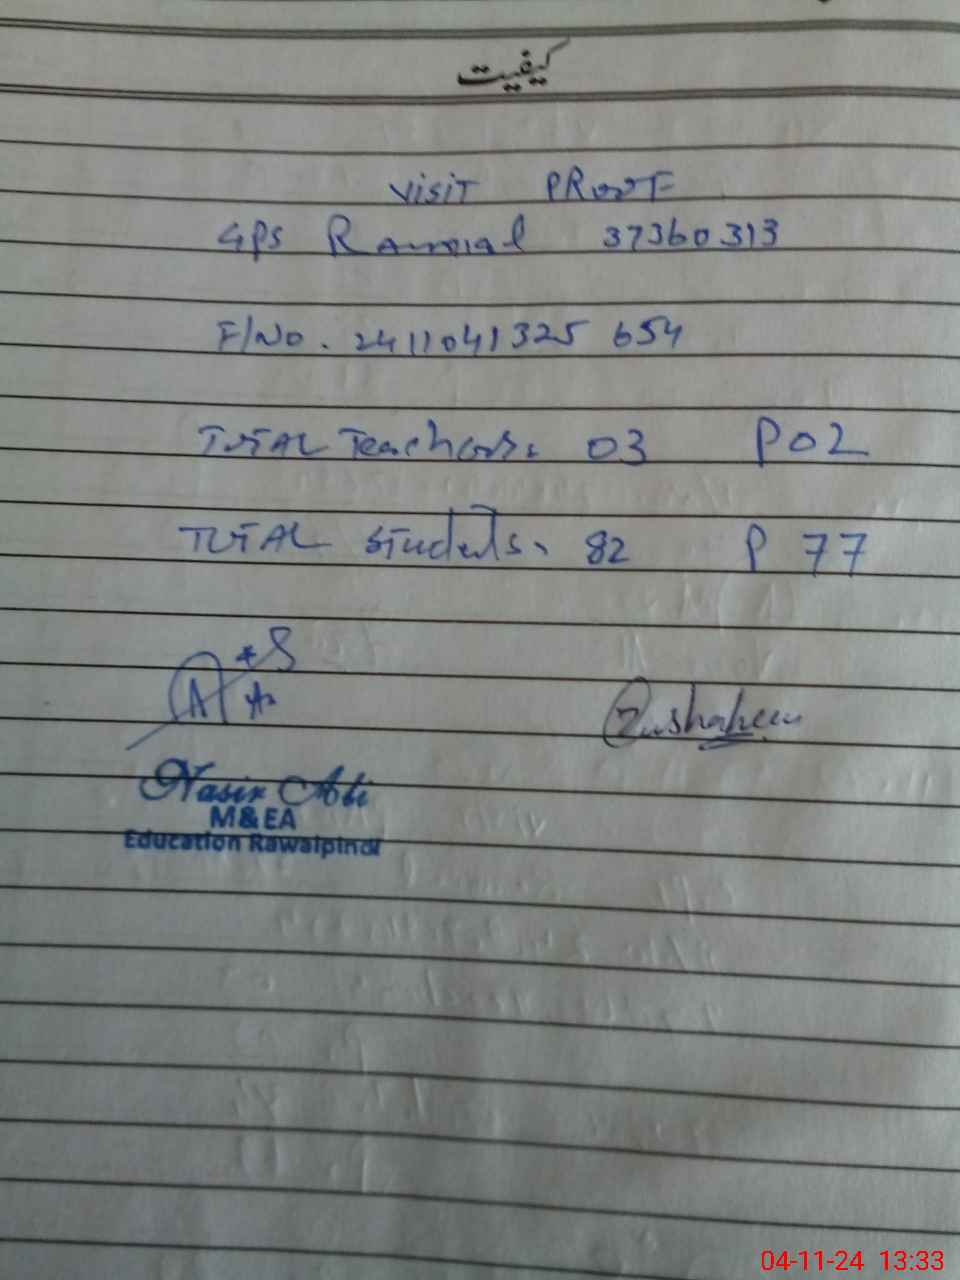 کیفیت
VISIT PROOF
GPS Ramial 37360313
F/No. 2411041325 654
TOTAL Teachers. 03 P 02
TOTAL Students. 82 P 77
Nasir Abi
M&EA
Education Rawalpindi
04-11-24 13:33